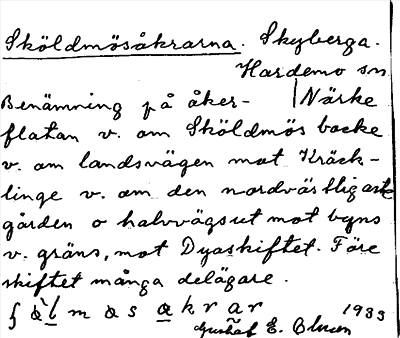 Sköldmösåkrarna. Skyberga.
Hardemo sn
Benämning på åker- | Närke
flatan v. om Sköldmös backe
v. om landsvägen mot Kräck-
linge v. om den nordvästligaste
gården o halvvägs ut mot byns
v. gräns, mot Dyaskiftet. Före
skiftet många delägare.
1933
Gustaf E. Olsson